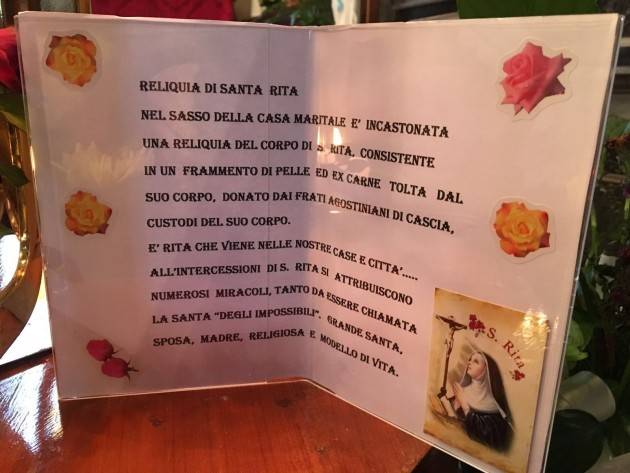 RELIQUIA DI SANTA RITA
NEL SASSO DELLA CASA MARITALE E' INCASTONATA
UNA RELIQUIA DEL CORPO DI S. RITA, CONSISTENTE
IN UN FRAMMENTO DI PELLE ED EX CARNE TOLTA DAL
SUO CORPO, DONATO DAI FRATI AGOSTINIANI DI CASCIA,
CUSTODI DEL SUO CORPO.
E' RITA CHE VIENE NELLE NOSTRE CASE E CITTA'.....
ALL'INTERCESSIONI DI S. RITA SI ATTRIBUISCONO
NUMEROSI MIRACOLI, TANTO DA ESSERE CHIAMATA
LA SANTA "DEGLI IMPOSSIBILI". GRANDE SANTA,
SPOSA, MADRE, RELIGIOSA E MODELLO DI VITA.
S. Rita